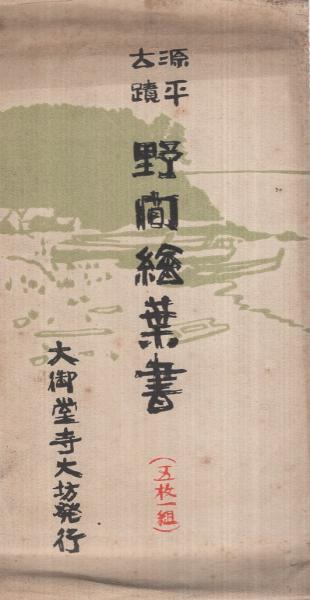 源平
古蹟
野間繪葉書
(五枚一組)
大御堂寺大坊発行